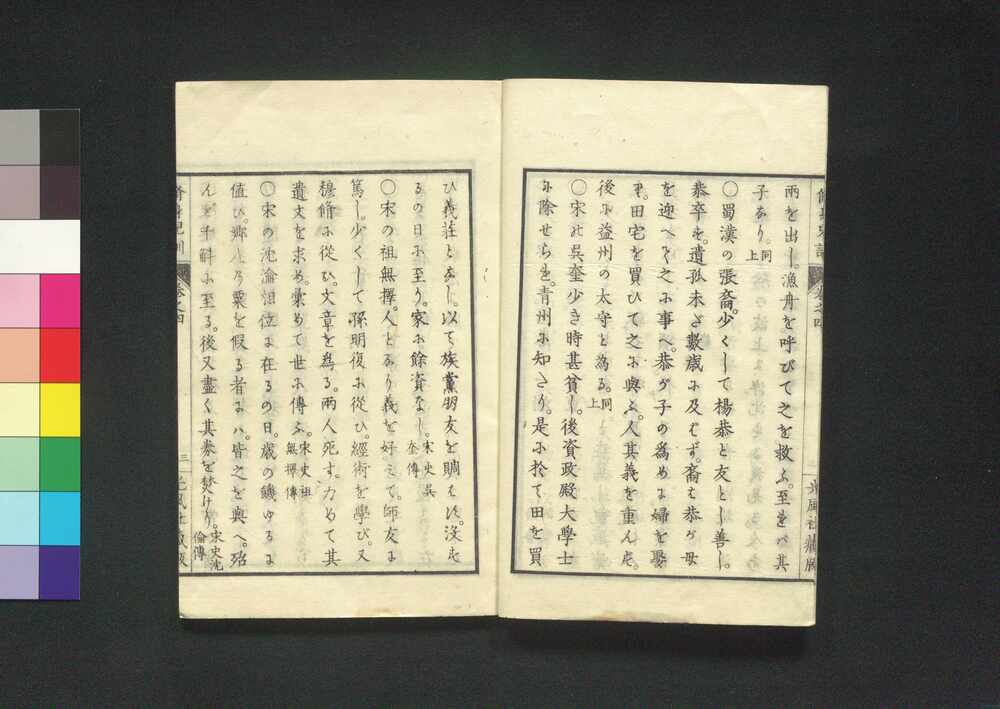 雨を出し。漁舟を呼びて之を救ふ。至れバ其
子なり。同上
〇蜀漢の張裔。少くして楊恭と友とし善し。
恭卒す。遺孤未だ數歳に及ばず。裔は恭が母
を迎へて之に事へ。恭が子の爲めに婦を娶
り。田宅を買ひて之に與ふ。人其義を重んず。
後に益州の太守と爲る。同上
〇宋の吳奎少き時甚貧し。後資政殿大學士
に除せらる。青州に知たり。是に於て田を買
ひ義莊となし。以て族黨朋友を賙はす。沒す
るの日に至り。家に餘資なし。宋史吳奎傳
〇宋の祖無擇。人となり義を好みて。師友に
篤し。少くして孫明復に從ひ。經術を學び。又
穆脩に從ひ。文章を爲る。兩人死す。力めて其
遺文を求め。彙めて世に傳ふ。宋史祖無擇傳
〇宋の沈淪相位に在るの日。歳の饑ゆるに
値ひ。鄉人の粟を假る者にハ。皆之を與へ。殆
んど千斛に至る。後又盡く其券を焚けり。宋史沈倫傳
卷之四
三